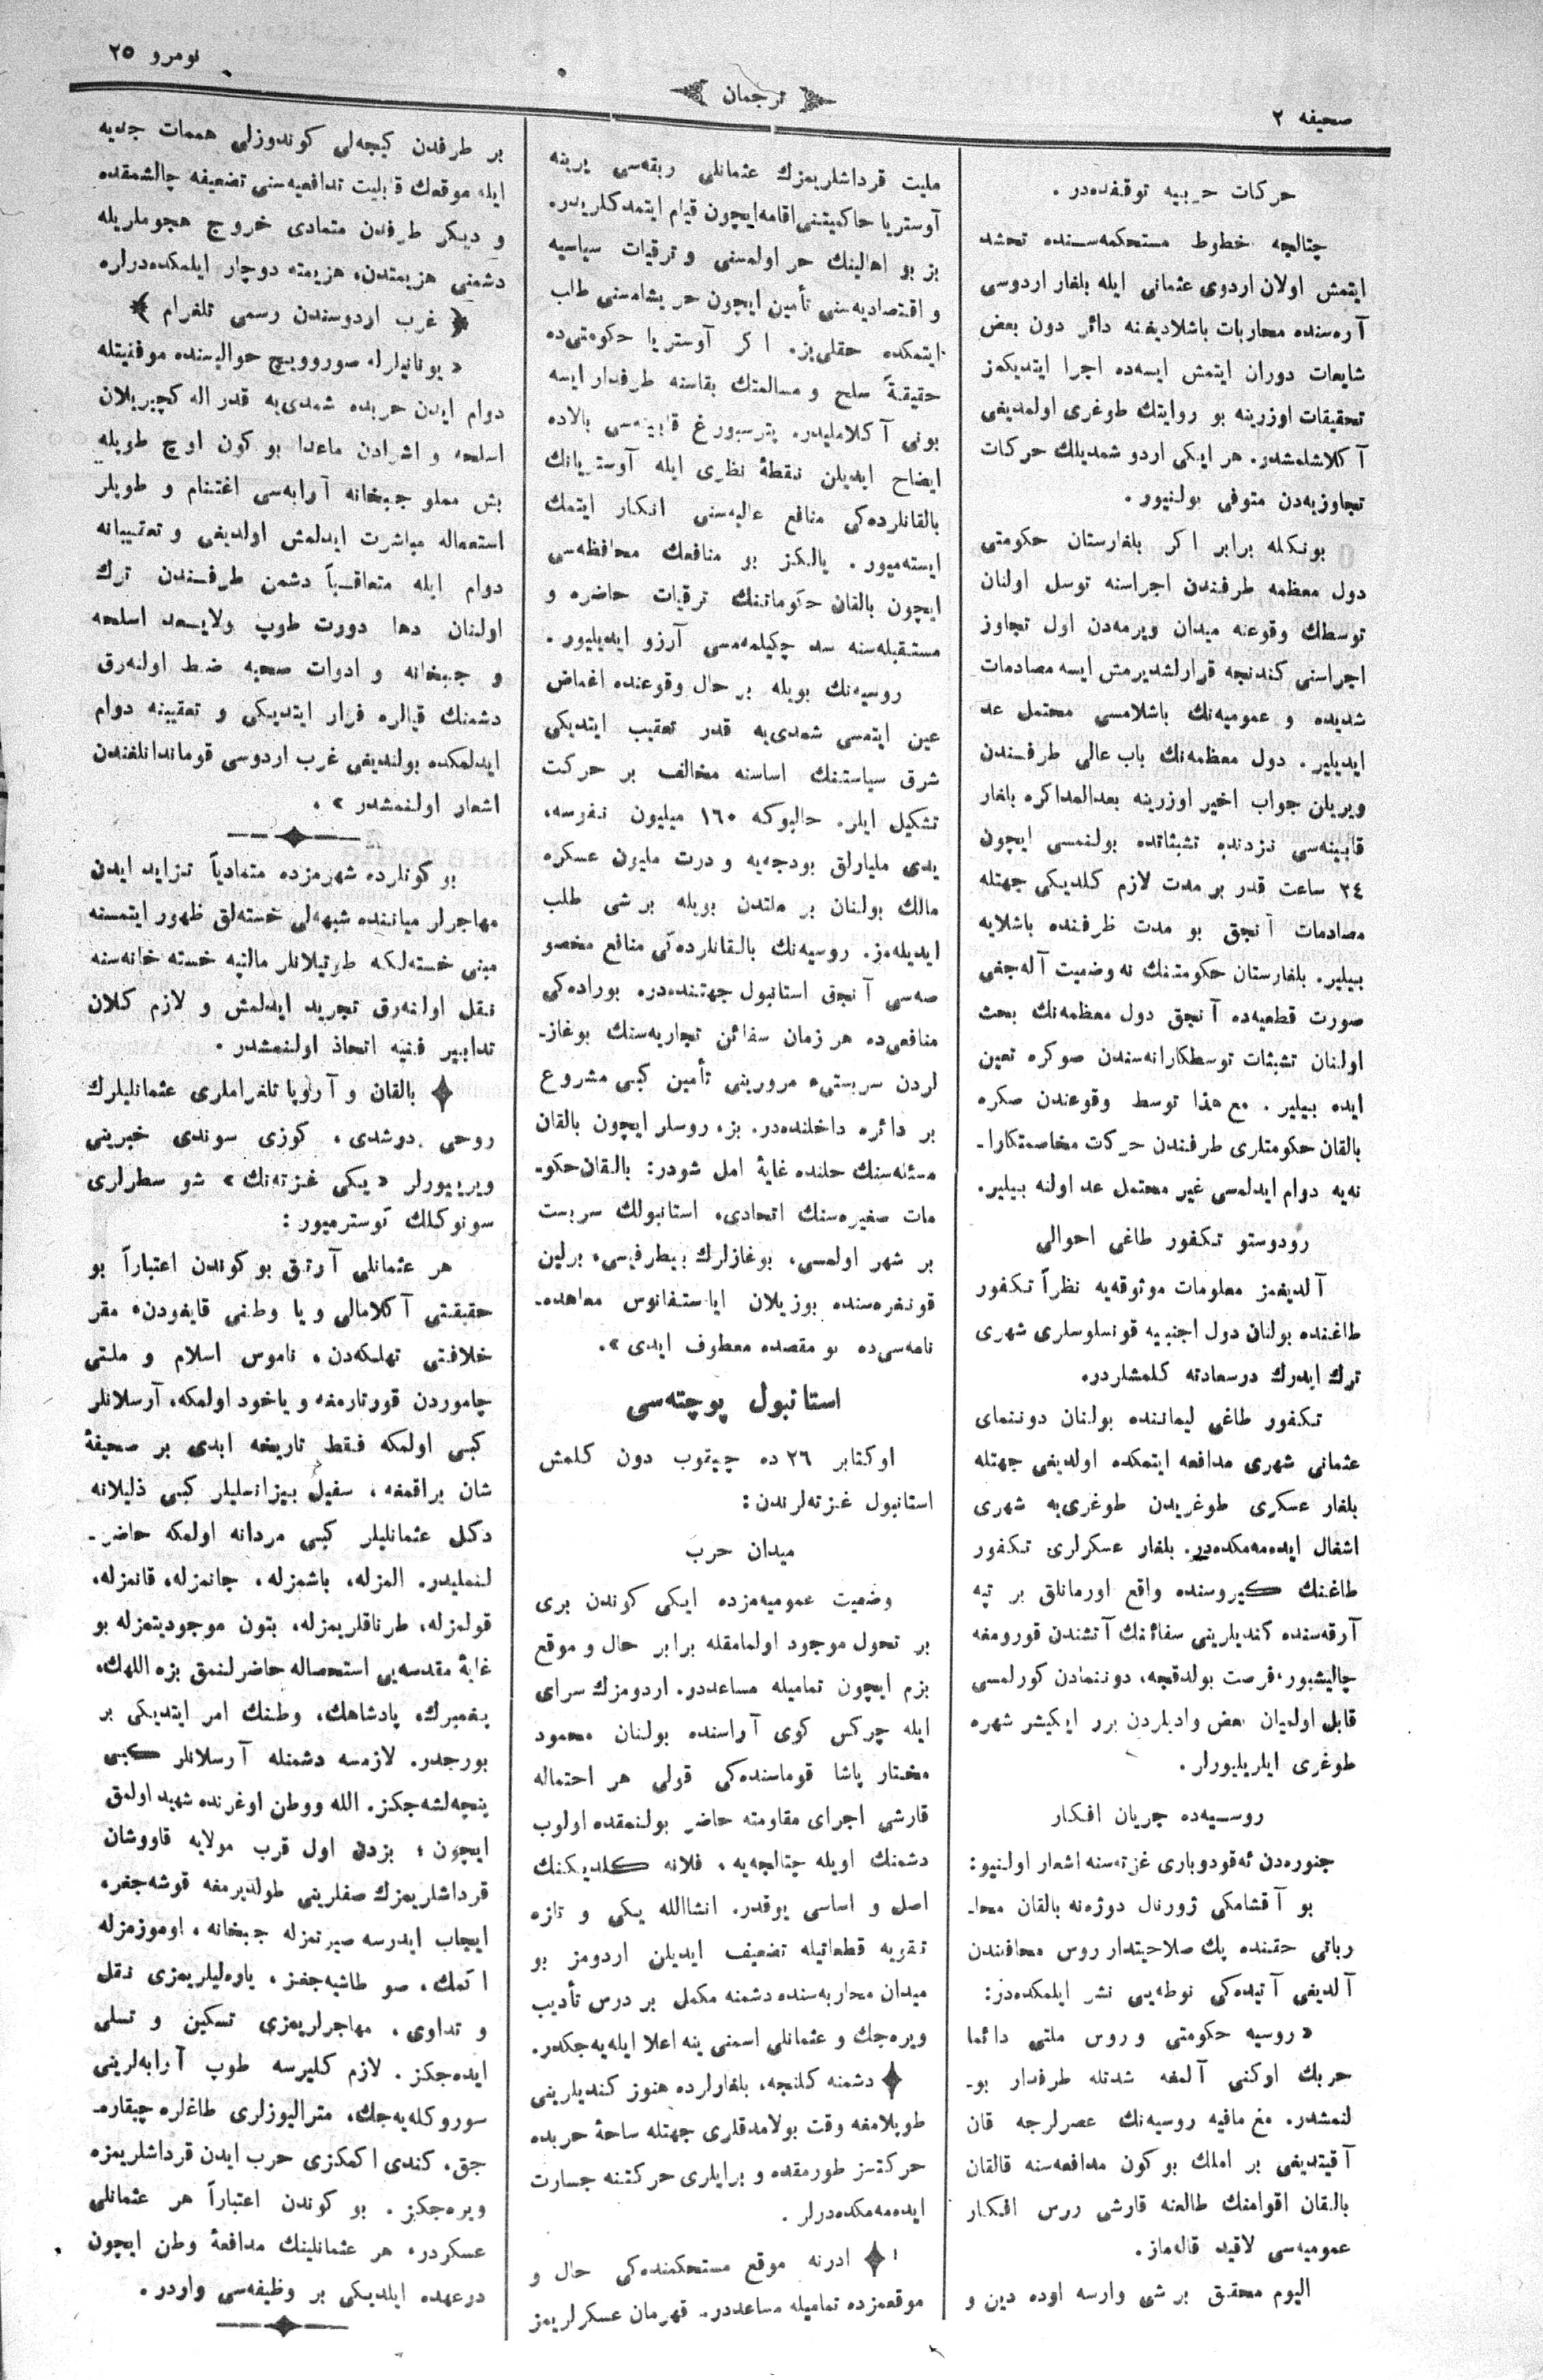 صحیفه ٢
ترجمان
نومرو ٢٥
حرکات حربیه توقفده‌در .
چتالچه خطوط مستحکمه‌سنده تحشد
ایتمش اولان اردوی عثمانی ایله بلغار اردوسی
آره‌سنده محاربات باشلادیغنه دائر دون بعض
شایعات دوران ایتمش ایسه‌ده اجرا ایتدیکمز
تحقیقات اوزرینه بو روایتك طوغری اولمدیغی
آکلاشلمشدر. هر ایکی اردو شمدیلك حرکات
تجاوزیه‌دن متوقی بولنیور .
بونکله برابر اکر بلغارستان حکومتی
دول معظمه طرفندن اجراسنه توسل اولنان
توسطك وقوعنه میدان ویرمه‌دن اول تجاوز
اجراسنی کندنجه قرارلشدیرمش ایسه مصادمات
شدیده و عمومیه‌نك باشلامسی محتمل عد
ایدیلیر . دول معظمه‌نك باب عالی طرفندن
ویریلن جواب اخیر اوزرینه بعدالمذاکره بلغار
قابینه‌سی نزدنده تشبثاتده بولنمسی ایچون
٢٤ ساعت قدر بر مدت لازم کلدیکی جهتله
مصادمات آنجق بو مدت ظرفنده باشلایه
بیلیر. بلغارستان حکومتنك نه وضعیت آله‌جغی
صورت قطعیه‌ده آنجق دول معظمه‌نك بحث
اولنان تشبثات توسطکارانه‌سندن صوکره تعین
ایده بیلیر . مع هذا توسط وقوعندن صکره
بالقان حکومتلری طرفندن حرکت مخاصمتکارا-
نه‌یه دوام ایدلمسی غیر محتمل عد اولنه بیلیر.
رودوستو تکفور طاغی احوالی
آلدیغمز معلومات موثوقه‌یه نظراً تکفور
طاغنده بولنان دول اجنبیه قونسلوسلری شهری
ترك ایدرك درسعادته کلمشلردر.
تکفور طاغی لیماننده بولنان دوننمای
عثمانی شهری مدافعه ایتمکده اولدیغی جهتله
بلغار عسکری طوغریدن طوغری‌یه شهری
اشغال ایده‌مه‌مکده‌در. بلغار عسکرلری تکفور
طاغنك کیروسنده واقع اورمانلق بر تپه
آرقه‌سنده کندیلرینی سفائنك آتشندن قورومغه
چالیشیور، فرصت بولدقجه، دوننمادن کورلمسی
قابل اولمیان بعض وادیلردن برر ایکیشر شهره
طوغری ایلریلیورلر .
روسیه‌ده جریان افکار
جنوره‌دن ئه‌قودوباری غزته‌سنه اشعار اولنیو:
بو آقشامکی ژورنال دوژه‌نه بالقان محا-
رباتی حقنده پك صلاحیتدار روس محافلندن
آلدیغی آتیده‌کی نوطه‌یی نشر ایلمکده‌در:
« روسیه حکومتی و روس ملتی دائما
حربك اوکنی آلمغه شدتله طرفدار بو-
لنمشدر. مع مافیه روسیه‌نك عصرلرجه قان
آقیتدیغی بر املك بو کون مدافعه‌سنه قالقان
بالقان اقوامنك طالعنه قارشی روس افکار
عمومیه‌سی لاقید قاله‌ماز .
الیوم محقق بر شی وارسه اوده دین و
ملیت قرداشلریمزك عثمانلی ربقه‌سی یرینه
آوستریا حاکمیتنی اقامه ایچون قیام ایتمدکلریدر.
بز بو اهالینك حر اولمسنی و ترقیات سیاسیه
و اقتصادیه‌سنی تأمین ایچون حر یشامسنی طلب
ایتمکده حقلی‌یز. اکر آوستریا حکومتی‌ده
حقیقةً صلح و مسالمتك بقاسنه طرفدار ایسه
بونی آکلامایدر. پترسبورغ قابینه‌سی بالاده
ایضاح ایدیلن نقطهٔ نظری ایله آوستریانك
بالقانلرده‌کی منافع عالیه‌سنی انکار ایتمك
ایسته‌میور . یالکز بو منافعك محافظه‌سی
ایچون بالقان حکوماتنك ترقیات حاضره و
مستقبله‌سنه سد چکیلمه‌مسی آرزو ایدیلیور .
روسیه‌نك بویله بر حال وقوعنده اغماض
عین ایتمسی شمدی‌یه قدر تعقیب ایتدیکی
شرق سیاستنك اساسنه مخالف بر حرکت
تشکیل ایلر. حالبوکه ١٦٠ میلیون نفوسه،
یدی ملیارلق بودجه‌یه و درت ملیون عسکره
مالك بولنان بر ملتدن بویله بر شی طلب
ایدیله‌مز. روسیه‌نك بالقانلرده‌کی منافع مخصو
صه‌سی آنجق استانبول جهتنده‌در. بوراده‌کی
منافعی‌ده هر زمان سفائن تجاریه‌سنك بوغاز-
لردن سربستیء مرورینی تأمین کبی مشروع
بر دائره داخلنده‌در. بز، روسلر ایچون بالقان
مسئله‌سنك حلنده غایهٔ امل شودر: بالقان حکو-
مات صغیره‌سنك اتحادی، استانبولك سربست
بر شهر اولمسی، بوغازلرك بیطرفیسی، برلین
قونغره‌سنده بوزیلان ایاستفانوس معاهده-
نامه‌سی‌ده بو مقصده معطوف ایدی ».
استانبول پوچته‌سی
اوکتابر ٢٦ ده چیقوب دون کلمش
استانبول غزته‌لرندن:
میدان حرب
وضعیت عمومیه‌مزده ایکی کوندن بری
بر تحول موجود اولمامقله برابر حال و موقع
بزم ایچون تمامیله مساعددر. اردومزك سرای
ایله چرکس کوی آراسنده بولنان محمود
مختار پاشا قوماسنده‌کی قولی هر احتماله
قارشی اجرای مقاومته حاضر بولنمقده اولوب
دشمنك اویله چتالجه‌یه، فلانه کلدیکنك
اصل و اساسی یوقدر. انشاالله یکی و تازه
تقویه قطعاتیله تضعیف ایدیلن اردومز بو
میدان محاربه‌سنده دشمنه مکمل بر درس تأدیب
ویره‌جك و عثمانلی اسمنی ینه اعلا ایله‌یه‌جکدر.
دشمنه کلنجه، بلغارلرده هنوز کندیلرینی
طوپلامغه وقت بولامدقلری جهتله ساحهٔ حربده
حرکتسز طورمقده و بر ایلری حرکتنه جسارت
ایده‌مه‌مکده‌درلر .
ادرنه موقع مستحکمنده‌کی حال و
موقعمزده تمامیله مساعددر. قهرمان عسکرلریمز
بر طرفدن کیجه‌لی کوندوزلی هممات جدیه
ایله موقعك قابلیت تدافعیه‌سنی تضعیفه چالشمقده
و دیکر طرفدن متمادی خروج هجوملریله
دشمنی هزیمتدن، هزیمته دوچار ایلمکده‌درلر.
﴿ غرب اردوسندن رسمی تلغرام ﴾
« یونانیلرله صوروویچ حوالیسنده موفقیتله
دوام ایدن حربده شمدی‌یه قدر اله کچیریلان
اسلحه و اشرادن ماعدا بو کون اوچ طوپله
بش مملو جبخانه آرابه‌سی اغتنام و طوپلر
استعماله مباشرت ایدلمش اولدیغی و تعقیباته
دوام ایله متعاقباً دشمن طرفندن ترك
اولنان دها دورت طوپ ولایعد اسلحه
و جبخانه و ادوات صحیه ضبط اولنه‌رق
دشمنك قیالره فرار ایتدیکی و تعقیبنه دوام
ایدلمکده بولندیغی غرب اردوسی قوماندانلغندن
اشعار اولنمشدر » .
بو کونلرده شهرمزده متمادیاً تزاید ایدن
مهاجرلر میاننده شبهه‌لی خسته‌لق ظهور ایتمسنه
مبنی خسته‌لکه طوتیلانلر مالتپه خسته خانه‌سنه
نقل اولنه‌رق تجرید ایدلمش و لازم کلان
تدابیر فنیه اتخاذ اولنمشدر .
بالقان و آروپا تلغراملری عثمانلیلرك
روحی دوشدی، کوزی سوندی خبرینی
ویرییورلر « یکی غزته‌نك » شو سطرلری
سونوکلك کوسترمیور:
هر عثمانلی آرتق بو کوندن اعتباراً بو
حقیقتی آکلامالی و یا وطنی قایغودن، مقر
خلافتی تهلکه‌دن، ناموس اسلام و ملتی
چاموردن قورتارمغه و یاخود اولمکه، آرسلانلر
کبی اولمکه فقط تاریخه ابدی بر صحیفهٔ
شان براقمغه، سفیل بیزانسلیلر کبی ذلیلانه
دکل عثمانلیلر کبی مردانه اولمکه حاضر-
لنملیدر. المزله، باشمزله، جانمزله، قانمزله،
قولمزله، طرناقلریمزله، بتون موجودیتمزله بو
غایهٔ مقدسه‌یی استحصاله حاضرلنمق بزه اللهك،
پغمبرك، پادشاهك، وطنك امر ایتدیکی بر
بورجدر. لازمسه دشمنله آرسلانلر کبی
پنچه‌لشه‌جکز. الله ووطن اوغرنده شهید اولمق
ایچون ؛ بزدن اول قرب مولایه قاووشان
قرداشلریمزك صفلرینی طولدیرمغه قوشه‌جغز.
ایجاب ایدرسه صیرتمزله جبخانه، اوموزمزله
اکمك، صو طاشیه‌جغز، یاره‌لیلریمزی نقل
و تداوی، مهاجرلریمزی تسکین و تسلی
ایده‌جکز . لازم کلیرسه طوپ آرابه‌لرینی
سوروکله‌یه‌جك، مترالیوزلری طاغلره چیقاره-
جق، کندی اکمکزی حرب ایدن قرداشلریمزه
ویره‌جکز . بو کوندن اعتباراً هر عثمانلی
عسکردر، هر عثمانلینك مدافعهٔ وطن ایچون
درعهده ایلدیکی بر وظیفه‌سی واردر .